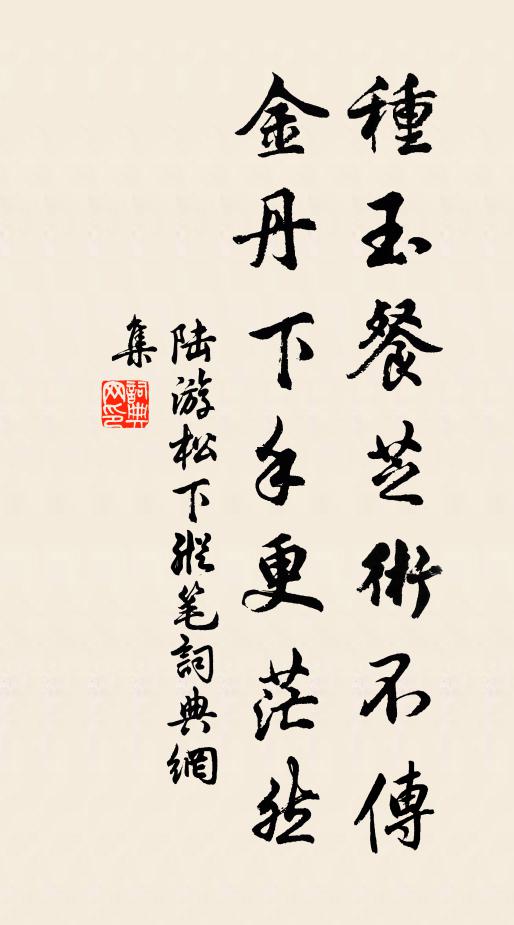 種玉餐芝術不傳
金丹下手更茫然
陆游松下縱笔詞典網
集
詞典网印